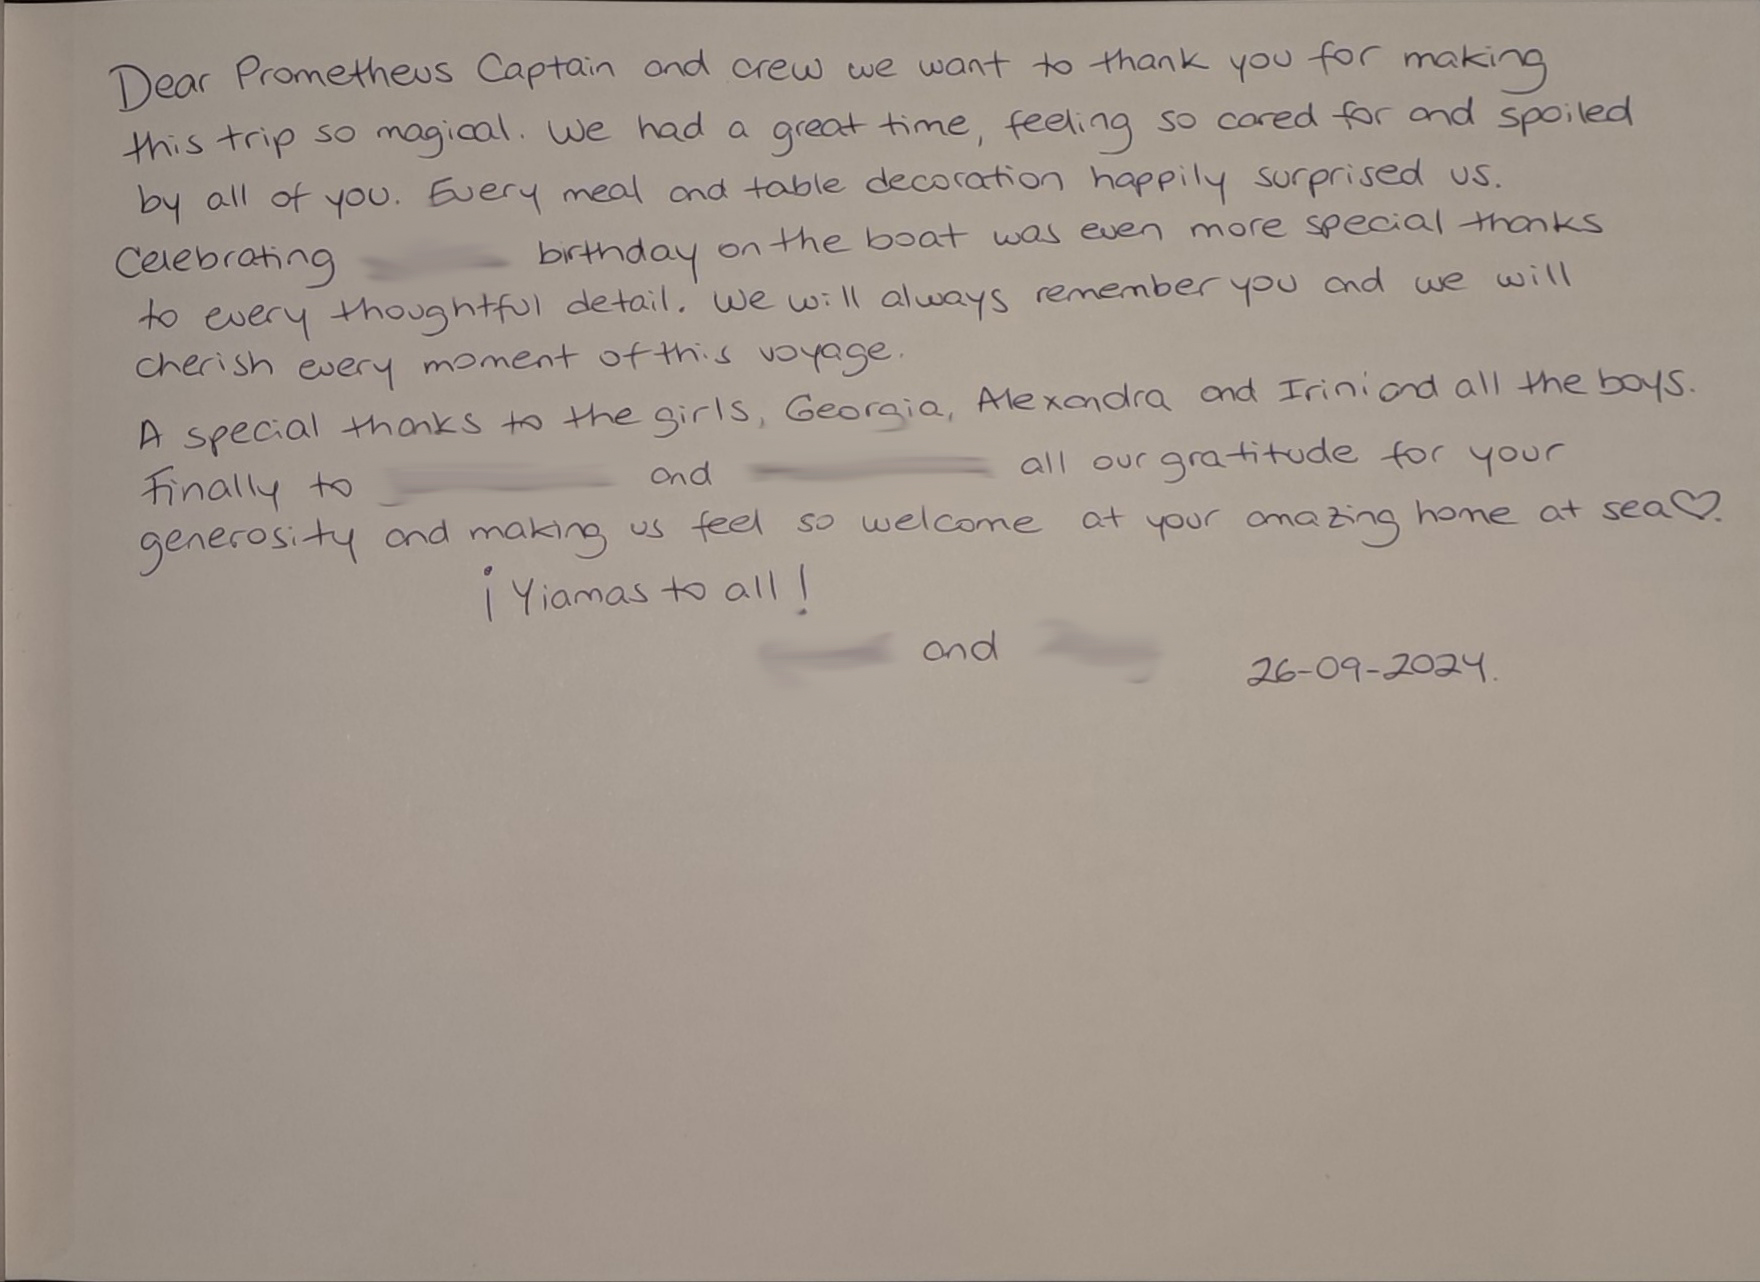 Dear Prometheus Captain and crew we want to thank you for making
this trip so magical. We had a great time, feeling so cared for and spoiled
by all of you. Every meal and table decoration happily surprised us.
Celebrating birthday on the boat was even more special thanks
to every thoughtful detail. We will always remember you and we will
cherish every moment of this voyage.
A special thanks to the girls, Georgia, Alexandra and Irini and all the boys.
Finally to and all our gratitude for your
generosity and making us feel so welcome at your amazing home at sea♡.
¡Yiamas to all!
and 26-09-2024.